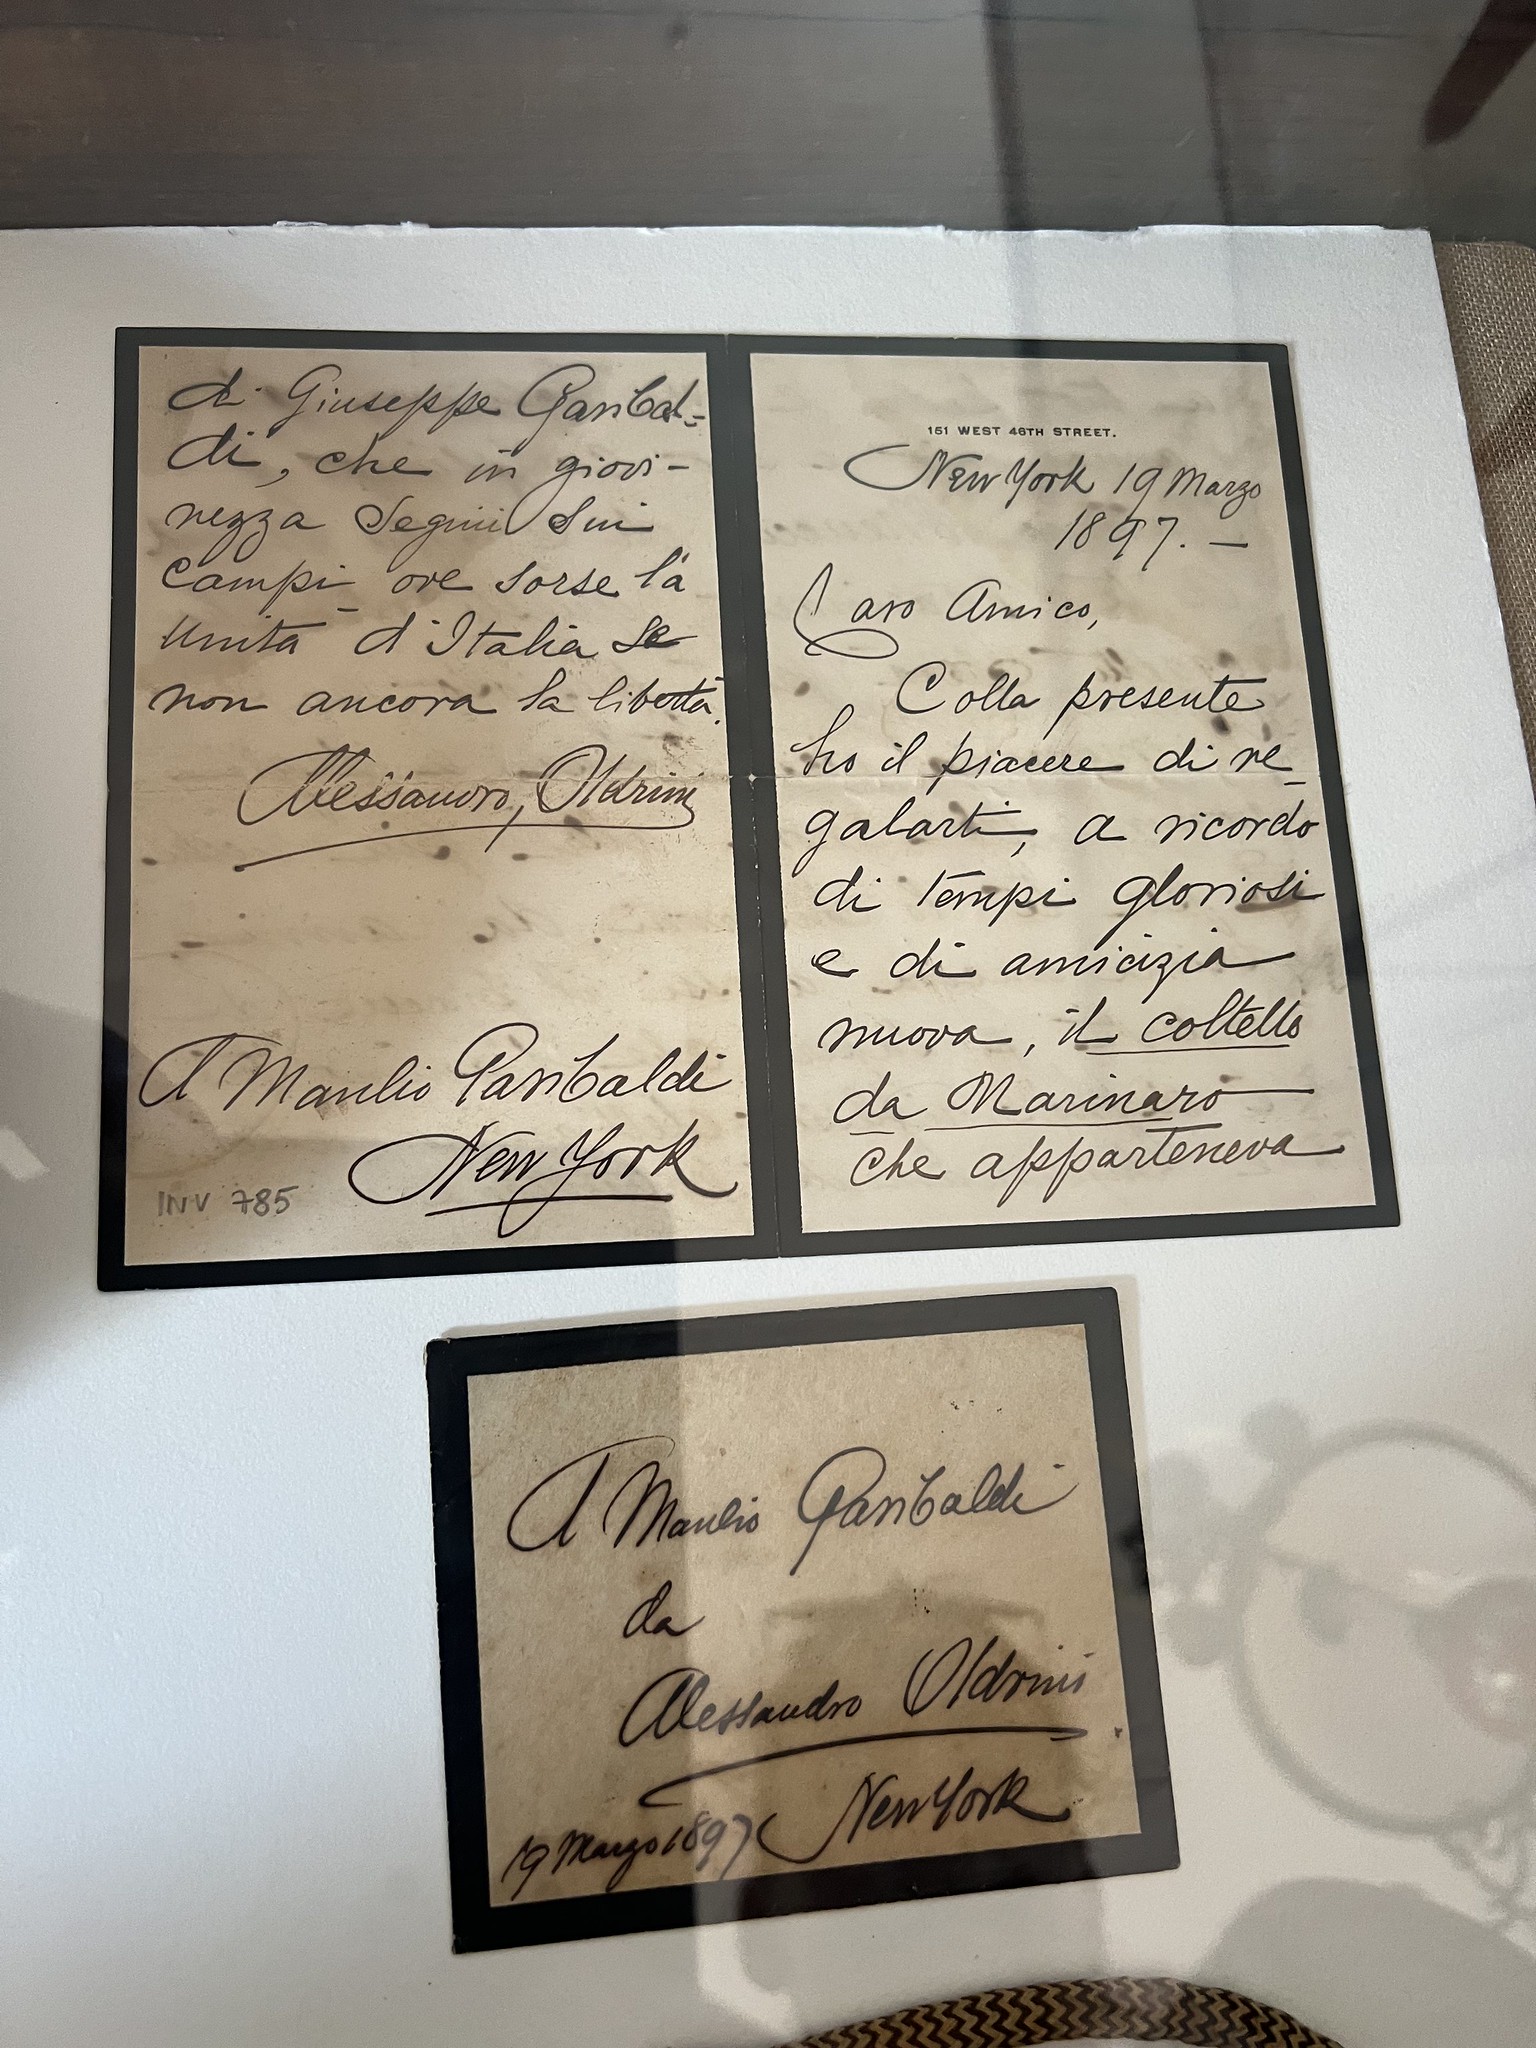 151 WEST 46TH STREET.
New York 19 Marzo
1897. —
Caro Amico,
Colla presente
ho il piacere di re-
galarti, a ricordo
di tempi gloriosi
e di amicizia
nuova, il coltello
da Marinaro
che apparteneva
di Giuseppe Garibal=
di, che in giovi-
nezza seguii sui
campi ove sorse la
unità d'Italia se
non ancora la libertà.
Alessandro Oldrini
A Manlio Garibaldi
New York
INV 785
A Manlio Garibaldi
da
Alessandro Oldrini
New York
19 Marzo 1897